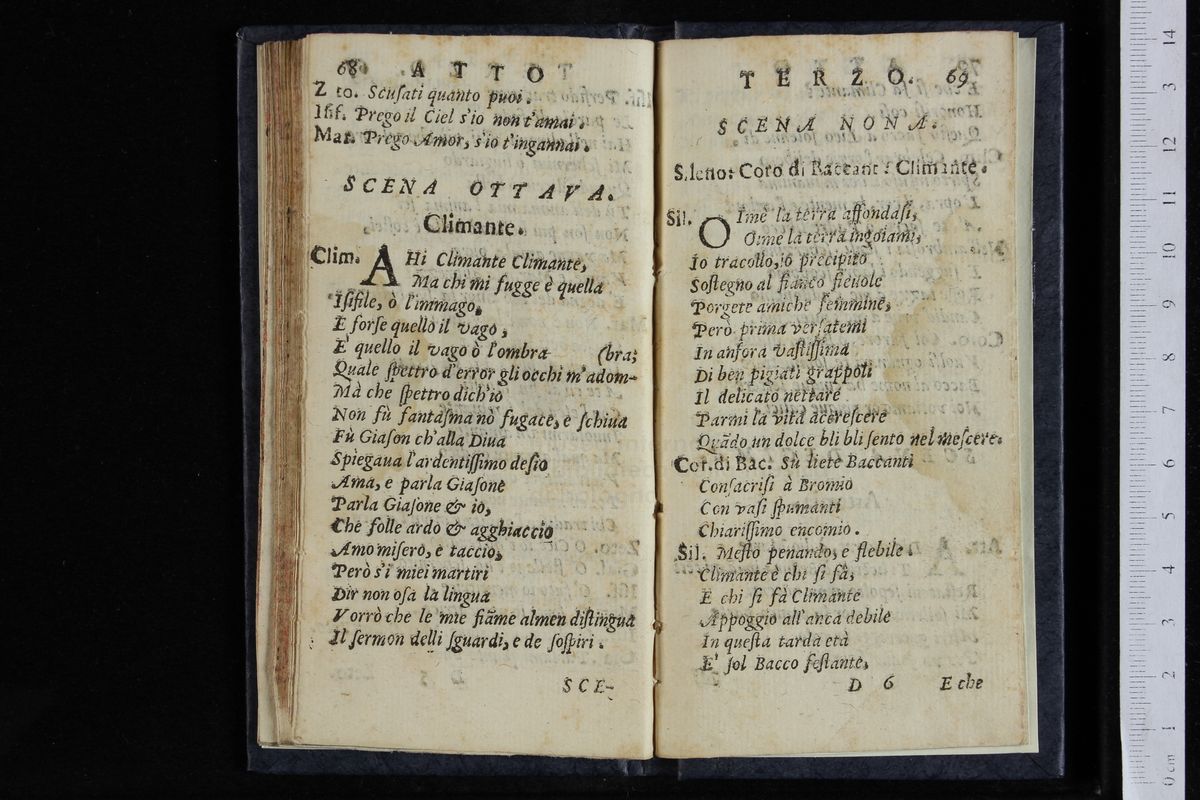 68 ATTO
Z to. Scuſati quanto puoi.
Iſif. Prego il Ciel s'io non t'amai.
Mar. Prego Amor, s'io t'ingannai.
SCENA OTTAVA.
Climante.
Clim. AHi Climante Climante,
Ma chi mi fugge è quella
Iſifile, ò l'immago,
E forſe quello il vago,
E' quello il vago ò l'ombra (bra;
Quale ſpettro d'error gli occhi m'adom-
Mà che ſpettro dich'io
Non fù fantaſma nò fugace, e ſchiua
Fù Giaſon ch'alla Diua
Spiegaua l'ardentiſſimo deſio
Ama, e parla Giaſone
Parla Giaſone & io,
Che folle ardo & agghiaccio
Amo miſero, e taccio,
Però s'i miei martiri
Dir non oſa la lingua
Vorrò che le mie fiāme almen diſtingua
Il ſermon delli ſguardi, e de ſoſpiri.
SCE-
TERZO. 69
SCENA NONA.
Sileno: Coro di Baccant: Climante.
Sil. OIme la terra affondaſi,
Oime la terra ingoiami,
Io tracollo, io precipito
Soſtegno al fianco fieuole
Porgete amiche femmine,
Però prima verſatemi
In anfora vaſtiſſima
Di ben pigiati grappoli
Il delicato nettare
Parmi la vita accreſcere
Quādo un dolce bli bli ſento nel meſcere.
Cor. di Bac. Sù liete Baccanti
Conſacriſi à Bromio
Con vaſi ſpumanti
Chiariſſimo encomio.
Sil. Meſto penando, e flebile
Climante è chi ſi fà,
E chi ſi fà Climante
Appoggio all'anca debile
In queſta tarda età
E' ſol Bacco feſtante,
D 6 E che
14
13
12
11
10
9
8
7
6
5
4
3
2
1
0 cm